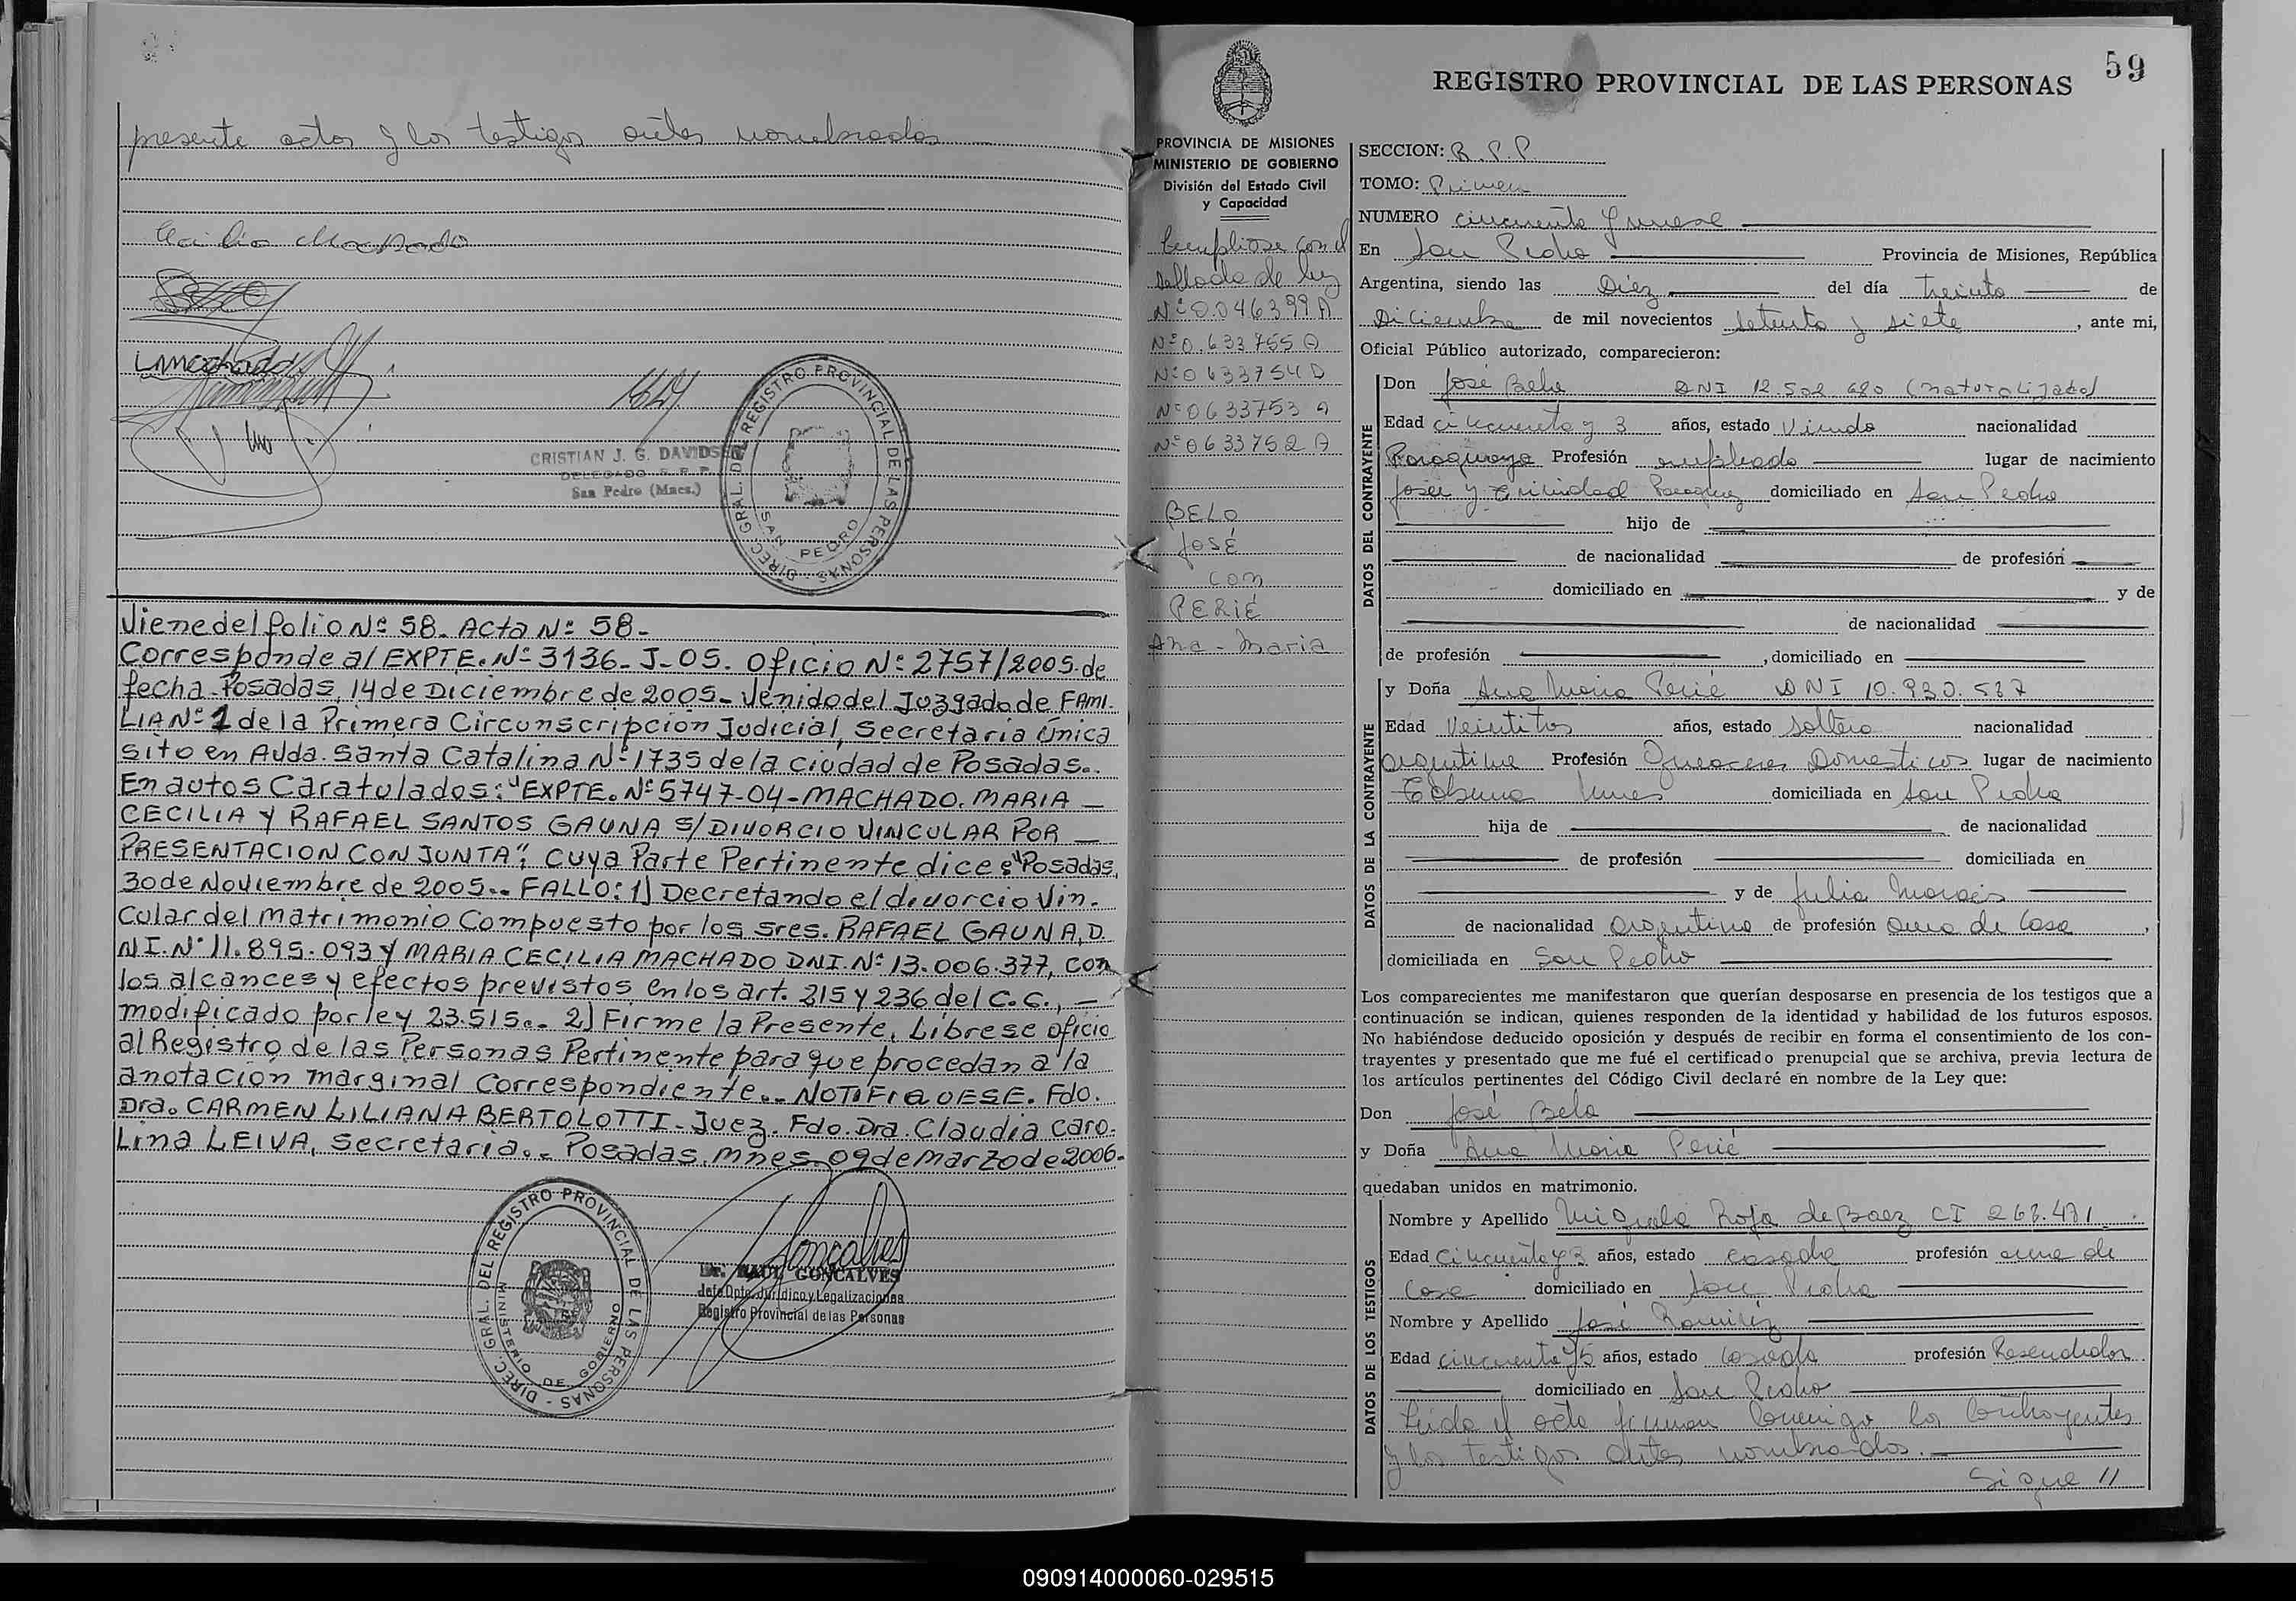 presente acta y los testigos antes nombrados
Cecilia Machado
LMachado
CRISTIAN J. G. DAVIDS
DELEGADO R. R. P.
San Pedro (Mnes.)
DIREC. GRAL. DEL REGISTRO PROVINCIAL DE LAS PERSONAS
SAN PEDRO
Viene del folio Nº 58. Acta Nº 58-
Corresponde al EXPTE. Nº 3136-J-05. Oficio Nº 2757/2005. de
fecha-Posadas, 14 de Diciembre de 2005- Venido del Juzgado de FAMI-
LIA Nº 1 de la Primera Circunscripción Judicial, Secretaría Única
sito en Avda. Santa Catalina Nº 1735 de la ciudad de Posadas..
En autos Caratulados: "EXPTE. Nº 5747-04-MACHADO. MARIA —
CECILIA Y RAFAEL SANTOS GAUNA S/DIVORCIO VINCULAR POR —
PRESENTACION CONJUNTA", cuya Parte Pertinente dice: "Posadas,
30 de Noviembre de 2005.. FALLO: 1) Decretando el divorcio Vin-
cular del matrimonio compuesto por los Sres. RAFAEL GAUNA, D.
N.I. Nº 11.895.093 Y MARIA CECILIA MACHADO DNI. Nº 13.006.377, con
los alcances y efectos previstos en los art. 215 y 236 del C.C., —
modificado por ley 23.515.. 2) Firme la Presente, Líbrese oficio
al Registro de las Personas Pertinente para que procedan a la
anotación marginal Correspondiente.. NOTIFIQUESE. Fdo.
Dra. CARMEN LILIANA BERTOLOTTI - Juez. Fdo. Dra. Claudia Caro-
Lina LEIVA, Secretaria.. Posadas, Mnes. 09 de Marzo de 2006-
DIREC. GRAL. DEL REGISTRO PROVINCIAL DE LAS PERSONAS -
MINISTERIO DE GOBIERNO
Goncalves
Dr. RAUL GONCALVES
Jefe Dpto. Jurídico y Legalizaciones
Registro Provincial de las Personas
59
REGISTRO PROVINCIAL DE LAS PERSONAS
PROVINCIA DE MISIONES
MINISTERIO DE GOBIERNO
División del Estado Civil
y Capacidad
con el
Sellado de ley
Nº 0.046399 A
Nº 0.633755 A
Nº 0633754 D
Nº 0633753 A
Nº 0633752 A
BELO
JOSÉ
con
PERIÉ
Ana - Maria
SECCION: R.P.P.
TOMO: Primero
NUMERO cincuenta y nueve
En San Pedro Provincia de Misiones, República
Argentina, siendo las Diez del día treinta de
Diciembre de mil novecientos setenta y siete, ante mi,
Oficial Público autorizado, comparecieron:
DATOS DEL CONTRAYENTE
Don José Belo DNI 12.502.680 (naturalizado)
Edad cincuenta y 3 años, estado Viudo nacionalidad
Paraguaya Profesión empleado lugar de nacimiento
y Trinidad Paraguay domiciliado en San Pedro
hijo de
de nacionalidad de profesión
domiciliado en y de
de nacionalidad
de profesión , domiciliado en
DATOS DE LA CONTRAYENTE
y Doña Ana Maria Perié DNI 10.930.537
Edad Veintitres años, estado soltera nacionalidad
argentina Profesión Quehaceres Domesticos lugar de nacimiento
domiciliada en San Pedro
hija de de nacionalidad
de profesión domiciliada en
y de Julia Morais
de nacionalidad Argentina de profesión ama de Casa,
domiciliada en San Pedro
Los comparecientes me manifestaron que querían desposarse en presencia de los testigos que a
continuación se indican, quienes responden de la identidad y habilidad de los futuros esposos.
No habiéndose deducido oposición y después de recibir en forma el consentimiento de los con-
trayentes y presentado que me fué el certificado prenupcial que se archiva, previa lectura de
los artículos pertinentes del Código Civil declaré en nombre de la Ley que:
Don José Belo
y Doña Ana Maria Perié
quedaban unidos en matrimonio.
DATOS DE LOS TESTIGOS
Nombre y Apellido Miguela Roja de Baez CI 263.471
Edad cincuenta y 3 años, estado casada profesión ama de
Casa domiciliado en San Pedro
Nombre y Apellido José Ramirez
Edad cincuenta y 5 años, estado Casado profesión
domiciliado en San Pedro
Leida el acta firman Conmigo los Contrayentes
y los testigos antes nombrados.
Sigue //
090914000060-029515